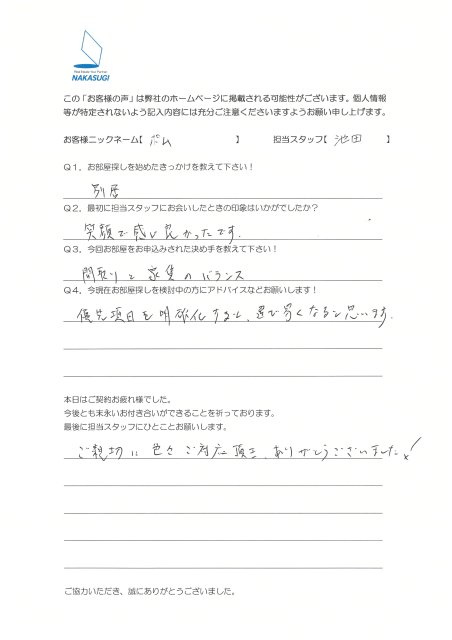 Real Estate Your Partner
NAKASUGI
この「お客様の声」は弊社のホームページに掲載される可能性がございます。個人情報
等が特定されないよう記入内容には充分ご注意くださいますようお願い申し上げます。
お客様ニックネーム【 ポム 】 担当スタッフ【 池田 】
Q1．お部屋探しを始めたきっかけを教えて下さい！
別居
Q2．最初に担当スタッフにお会いしたときの印象はいかがでしたか？
笑顔で感じ良かったです.
Q3．今回お部屋をお申込みされた決め手を教えて下さい！
間取りと家賃のバランス
Q4．今現在お部屋探しを検討中の方にアドバイスなどお願いします！
優先項目を明確化すると、選び易くなると思います.
本日はご契約お疲れ様でした。
今後とも末永いお付き合いができることを祈っております。
最後に担当スタッフにひとことお願いします。
ご親切に色々ご対応頂き、ありがとうございました!
ご協力いただき、誠にありがとうございました。